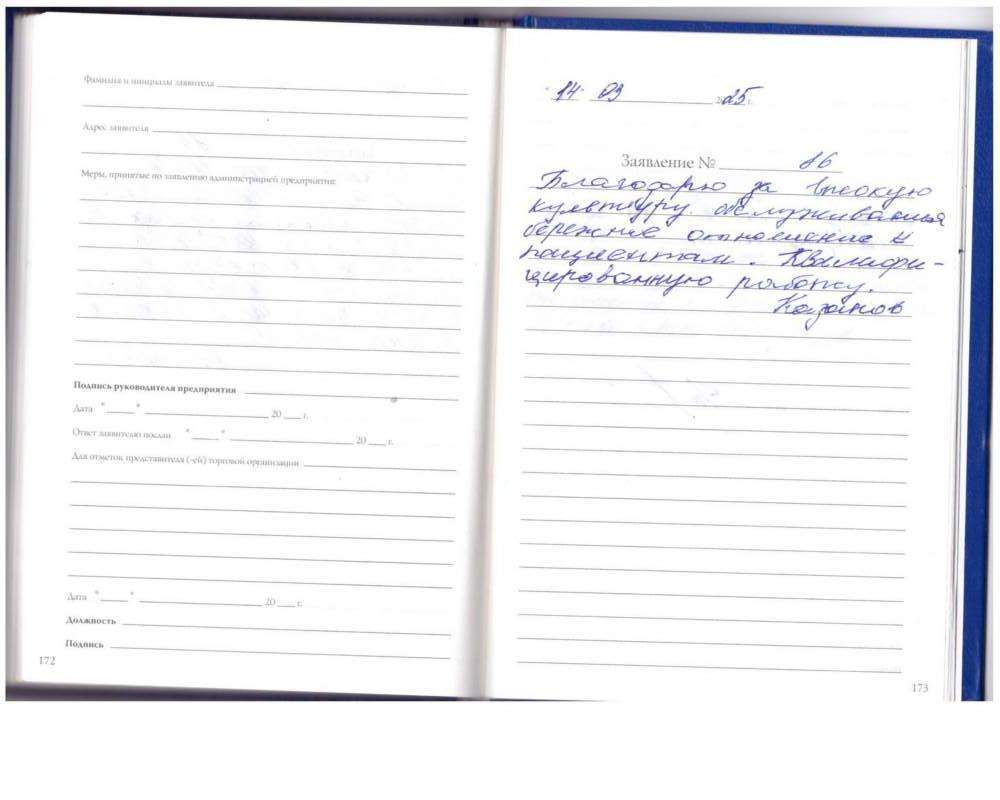 Фамилия и инициалы заявителя
Адрес заявителя
Меры, принятые по заявлению администрацией предприятия:
Подпись руководителя предприятия
Дата "____" ____________ 20 ___ г.
Ответ заявителю послан "____" ____________ 20 ___ г.
Для отметок представителя (-ей) торговой организации
Дата "____" ____________ 20 ___ г.
Должность
Подпись
172
"14" 03 2025 г.
Заявление № 86
Благодарю за высокую
культуру обслуживания
бережние отношение к
пациентам. Квалифи-
цированную работу.
Казанов
173